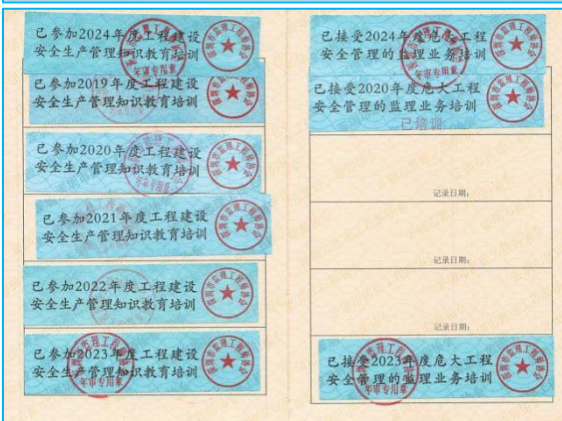 已参加2024年度工程建设
安全生产管理知识教育培训
已参加2019年度工程建设
安全生产管理知识教育培训
已参加2020年度工程建设
安全生产管理知识教育培训
已参加2021年度工程建设
安全生产管理知识教育培训
已参加2022年度工程建设
安全生产管理知识教育培训
已参加2023年度工程建设
安全生产管理知识教育培训
已接受2024年度危大工程
安全管理的监理业务培训
已接受2020年度危大工程
安全管理的监理业务培训
已培训
记录日期：
记录日期：
记录日期：
已接受2023年度危大工程
安全管理的监理业务培训